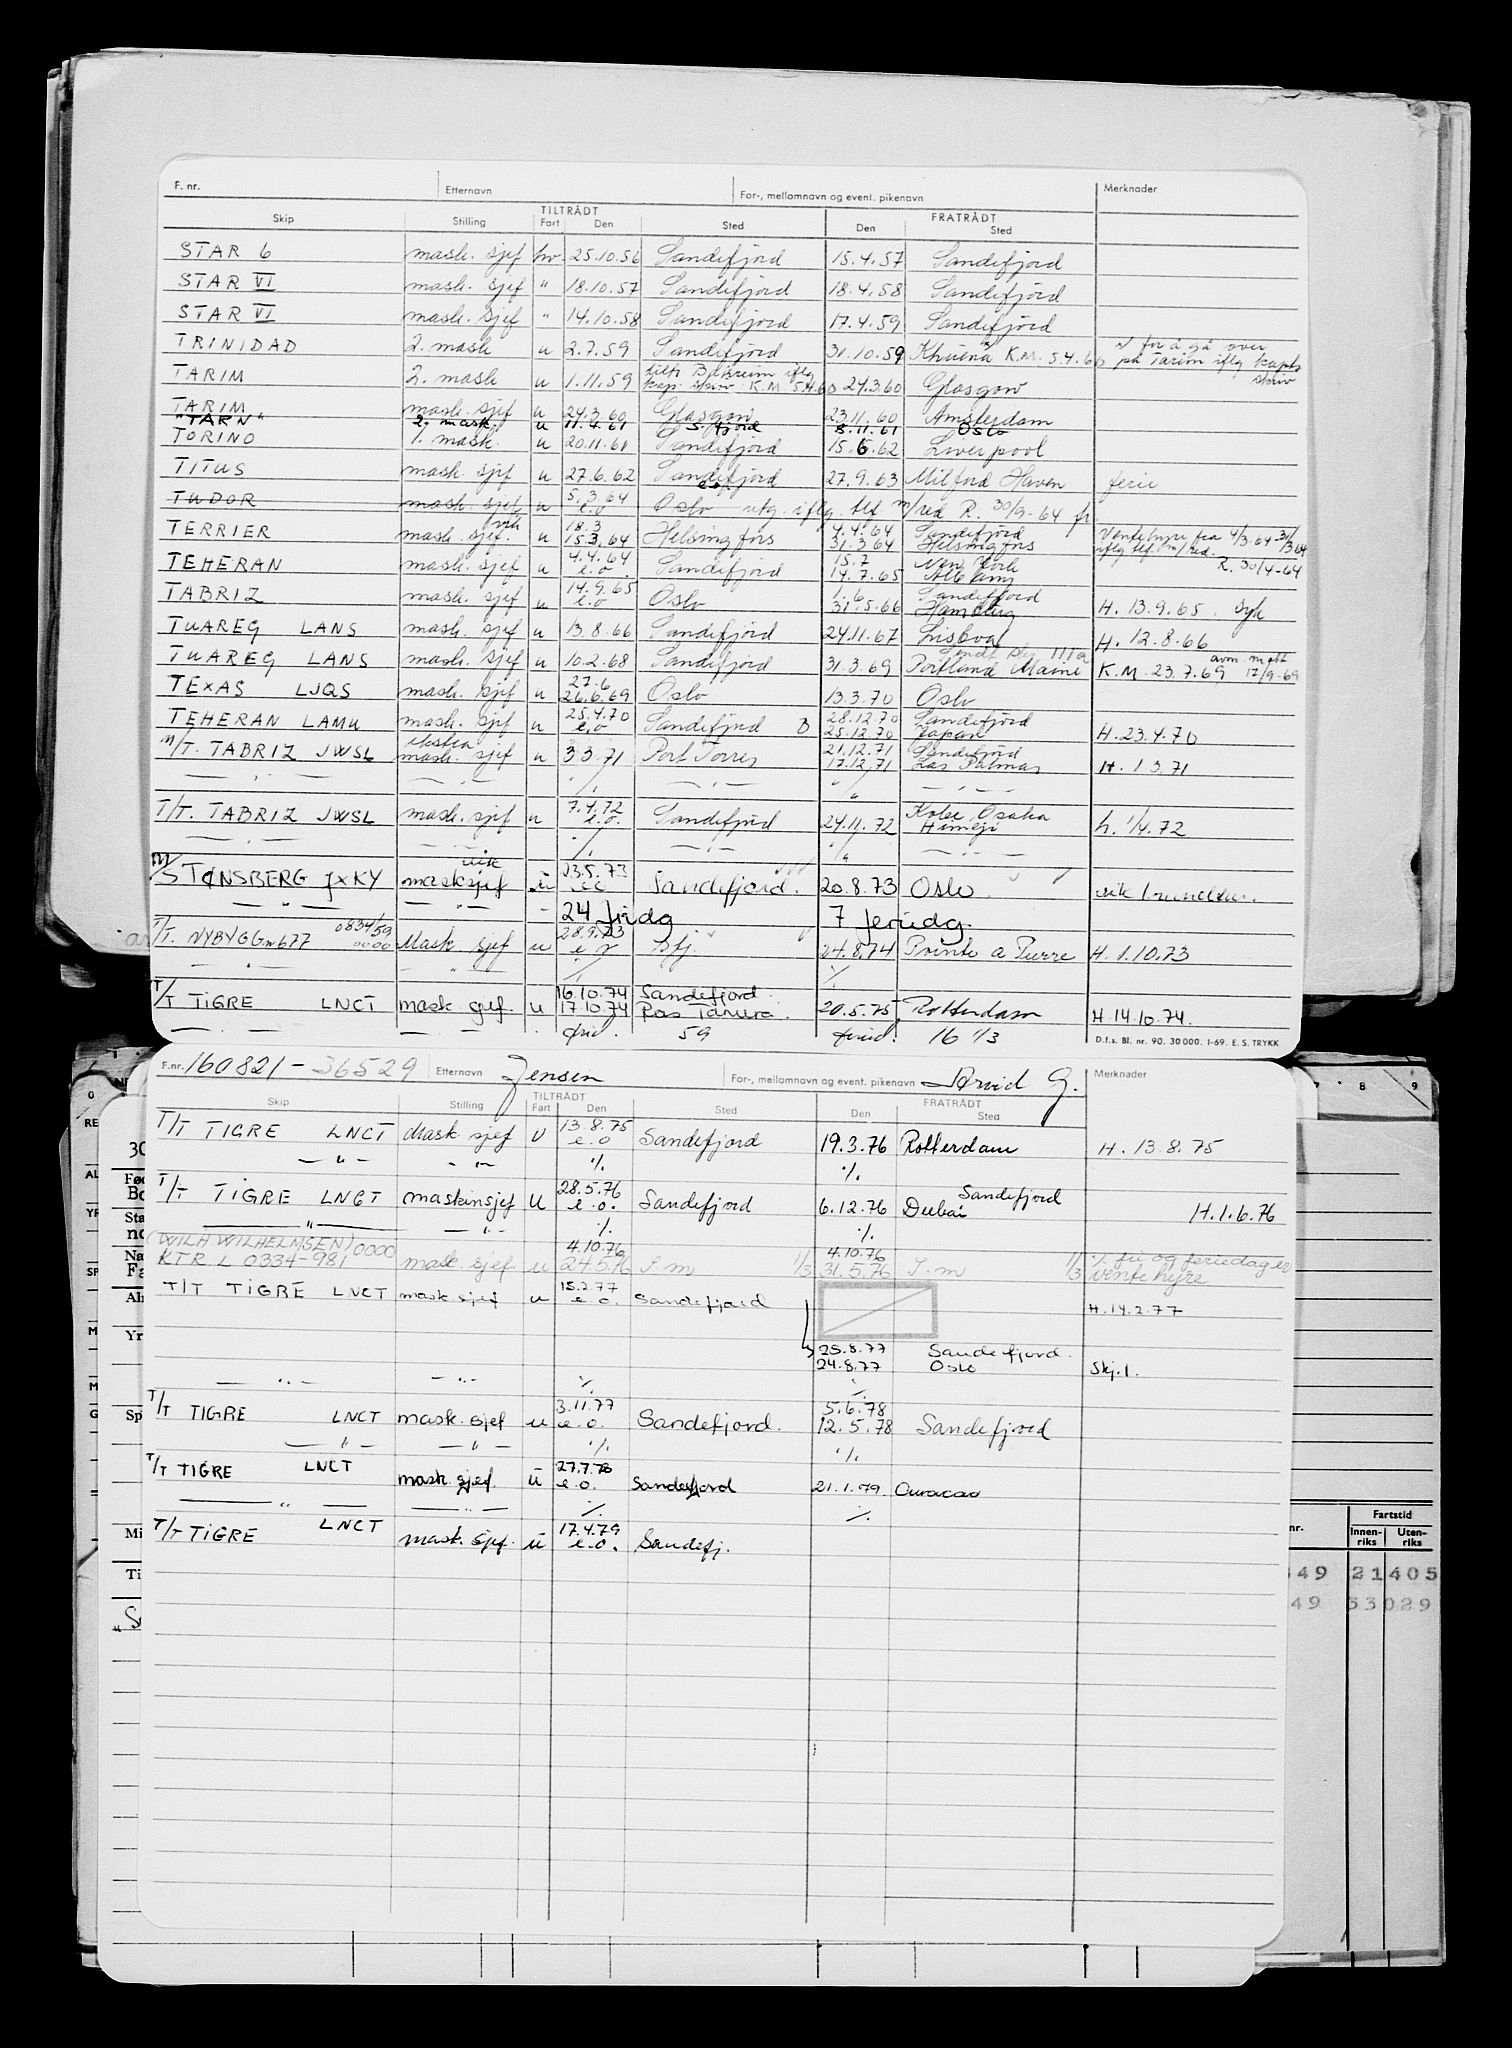 F. nr. Etternavn For-, mellomnavn og event. pikenavn Merknader
Skip Stilling TILTRÅDT Fart Den Sted Den FRATRÅDT Sted
STAR 6 mask. sjef hv. 25.10.56 Sandefjord 15.4.57 Sandefjord
STAR VI mask. sjef " 18.10.57 Sandefjord 18.4.58 Sandefjord
STAR VI mask. sjef " 14.10.58 Sandefjord 17.4.59 Sandefjord
TRINIDAD 2. mask u 2.7.59 Sandefjord 31.10.59 K.M. 5.4.60 for å gå over
på Tarim iflg kapts
skriv
TARIM 2. mask u 1.11.59 iflg
kap. skriv K.M. 5.4.60 24.3.60 Glasgow
TARIM mask. sjef u 24.3.60 Glasgow 23.11.60 Amsterdam
"TARN" 2. mask. u 11.4.61 S.fjord 8.11.61 Oslo
TORINO 1. mask. u 20.11.61 Sandefjord 15.6.62 Liverpool
TITUS mask. sjef u 27.6.62 Sandefjord 27.9.63 Milford Haven ferie
TUDOR mask. sjef u 5.3.64 e.o Oslo utg. iflg. tlf m/red R. 30/9-64
TERRIER mask. sjef. vik u 18.3 15.3.64 Helsingfors 4.4.64 Sandefjord
31.3.64 Helsingfors Ventehyre fra 4/3.64-31/3.64
iflg tlf. m/red.
R. 30/4-64
TEHERAN mask. sjef u 4.4.64 e.o. Sandefjord 15.7 New York
14.7.65 Albany
TABRIZ mask. sjef u 14.9.65 e.o Oslo 1.6 Sandefjord
31.5.66 Hamburg H. 13.9.65. syk
TUAREG LANS mask. sjef u 13.8.66 Sandefjord 24.11.67 Lisboa H. 12.8.66
TUAREG LANS mask. sjef u 10.2.68 Sandefjord 31.3.69 Portland Maine K.M. 23.7.69 avm. mott 17/9-69
TEXAS LJQS mask. sjef u 27.6 26.6.69 Oslo 13.3.70 Oslo
TEHERAN LAMU mask. sjef u 25.4.70 e.o Sandefjord B 28.12.70 Sandefjord
25.12.70 Japan H. 23.4.70
M/T. TABRIZ JWSL ekstra mask. sjef u 3.3.71 Port Torres 21.12.71 Sandefjord
17.12.71 Las Palmas H. 1.3.71
— " — % — " — % — " —
T/T. TABRIZ JWSL mask. sjef u 7.4.72 e.o. Sandefjord 24.11.72 Kobe, Osaka
Himeji h. 1/4.72
— " — % — " — % — " —
M/S TØNSBERG JXKY vik masksjef u 23.5.73 Sandefjord. 20.8.73 Oslo
— " — — " — - 24 fridg 7 feriedg.
T/T. NYBYGG nr 677 0834/59 0000 Mask sjef u 28.9.73 Sfj. 24.8.74 Pointe a Pierre H. 1.10.73
— " — — " — % %
T/T TIGRE LNCT mask. sjef. u 16.10.74 Sandefjord
17.10.74 Ras Tanura. 20.5.75 Rotterdam H. 14.10.74.
— " — — " — frid. 59 frid. 16 1/3 D.f.s. Bl. nr. 90. 30 000. 1-69. E. S. TRYKK
F.nr. 160821-36529 Etternavn Jensen For-, mellomnavn og event. pikenavn Arvid G. Merknader
Skip Stilling TILTRÅDT Fart Den Sted Den FRATRÅDT Sted
T/T TIGRE LNCT Mask sjef U 13.8.75 e.o Sandefjord 19.3.76 Rotterdam H. 13.8.75
— " — - " - % %
T/T TIGRE LNCT maskinsjef U 28.5.76 e.o. Sandefjord 6.12.76 Sandefjord
Dubai H. 1.6.76
— " — — " — % %
(WILH WILHELMSEN) 0000 4.10.76 4.10.76
KTR L 0334-981 mask. sjef u 24.5.76 S.m 1/3 31.5.76 S.m 1/3 % fri og feriedager
ventehyre
T/T TIGRE LNCT mask. sjef u 15.2.77 e.o. Sandefjord H. 14.2.77
25.8.77 Sandefjord.
24.8.77 Oslo Skj. 1.
— " — — " — % %
T/T TIGRE LNCT mask. sjef u 3.11.77 e.o. Sandefjord. 5.6.78
12.5.78 Sandefjord
— " — — " — % %
T/T TIGRE LNCT mask. sjef. u 27.7.78 e.o. Sandefjord 21.1.79. Curacao
— " — — " — % %
T/T TIGRE LNCT mask. sjef. u 17.4.79 e.o. Sandefj.
8 9
Fartstid
nr. Innen-riks Uten-riks
49 21 405
49 53 029